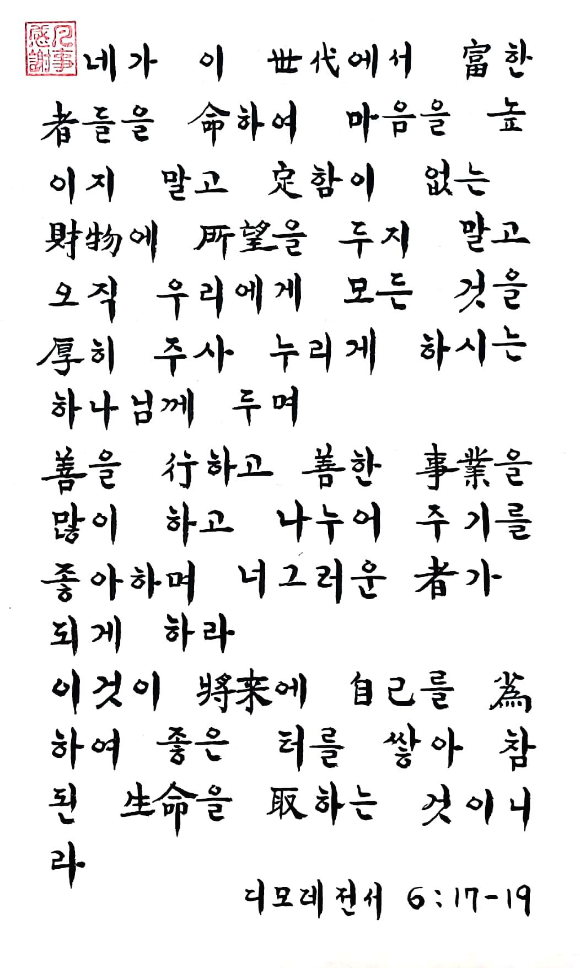 凡事
感謝
네가 이 世代에서 富한
者들을 命하여 마음을 높
이지 말고 定함이 없는
財物에 所望을 두지 말고
오직 우리에게 모든 것을
厚히 주사 누리게 하시는
하나님께 두며
善을 行하고 善한 事業을
많이 하고 나누어 주기를
좋아하며 너그러운 者가
되게 하라
이것이 將来에 自己를 為
하여 좋은 터를 쌓아 참
된 生命을 取하는 것이니
라
디모데전서 6:17-19